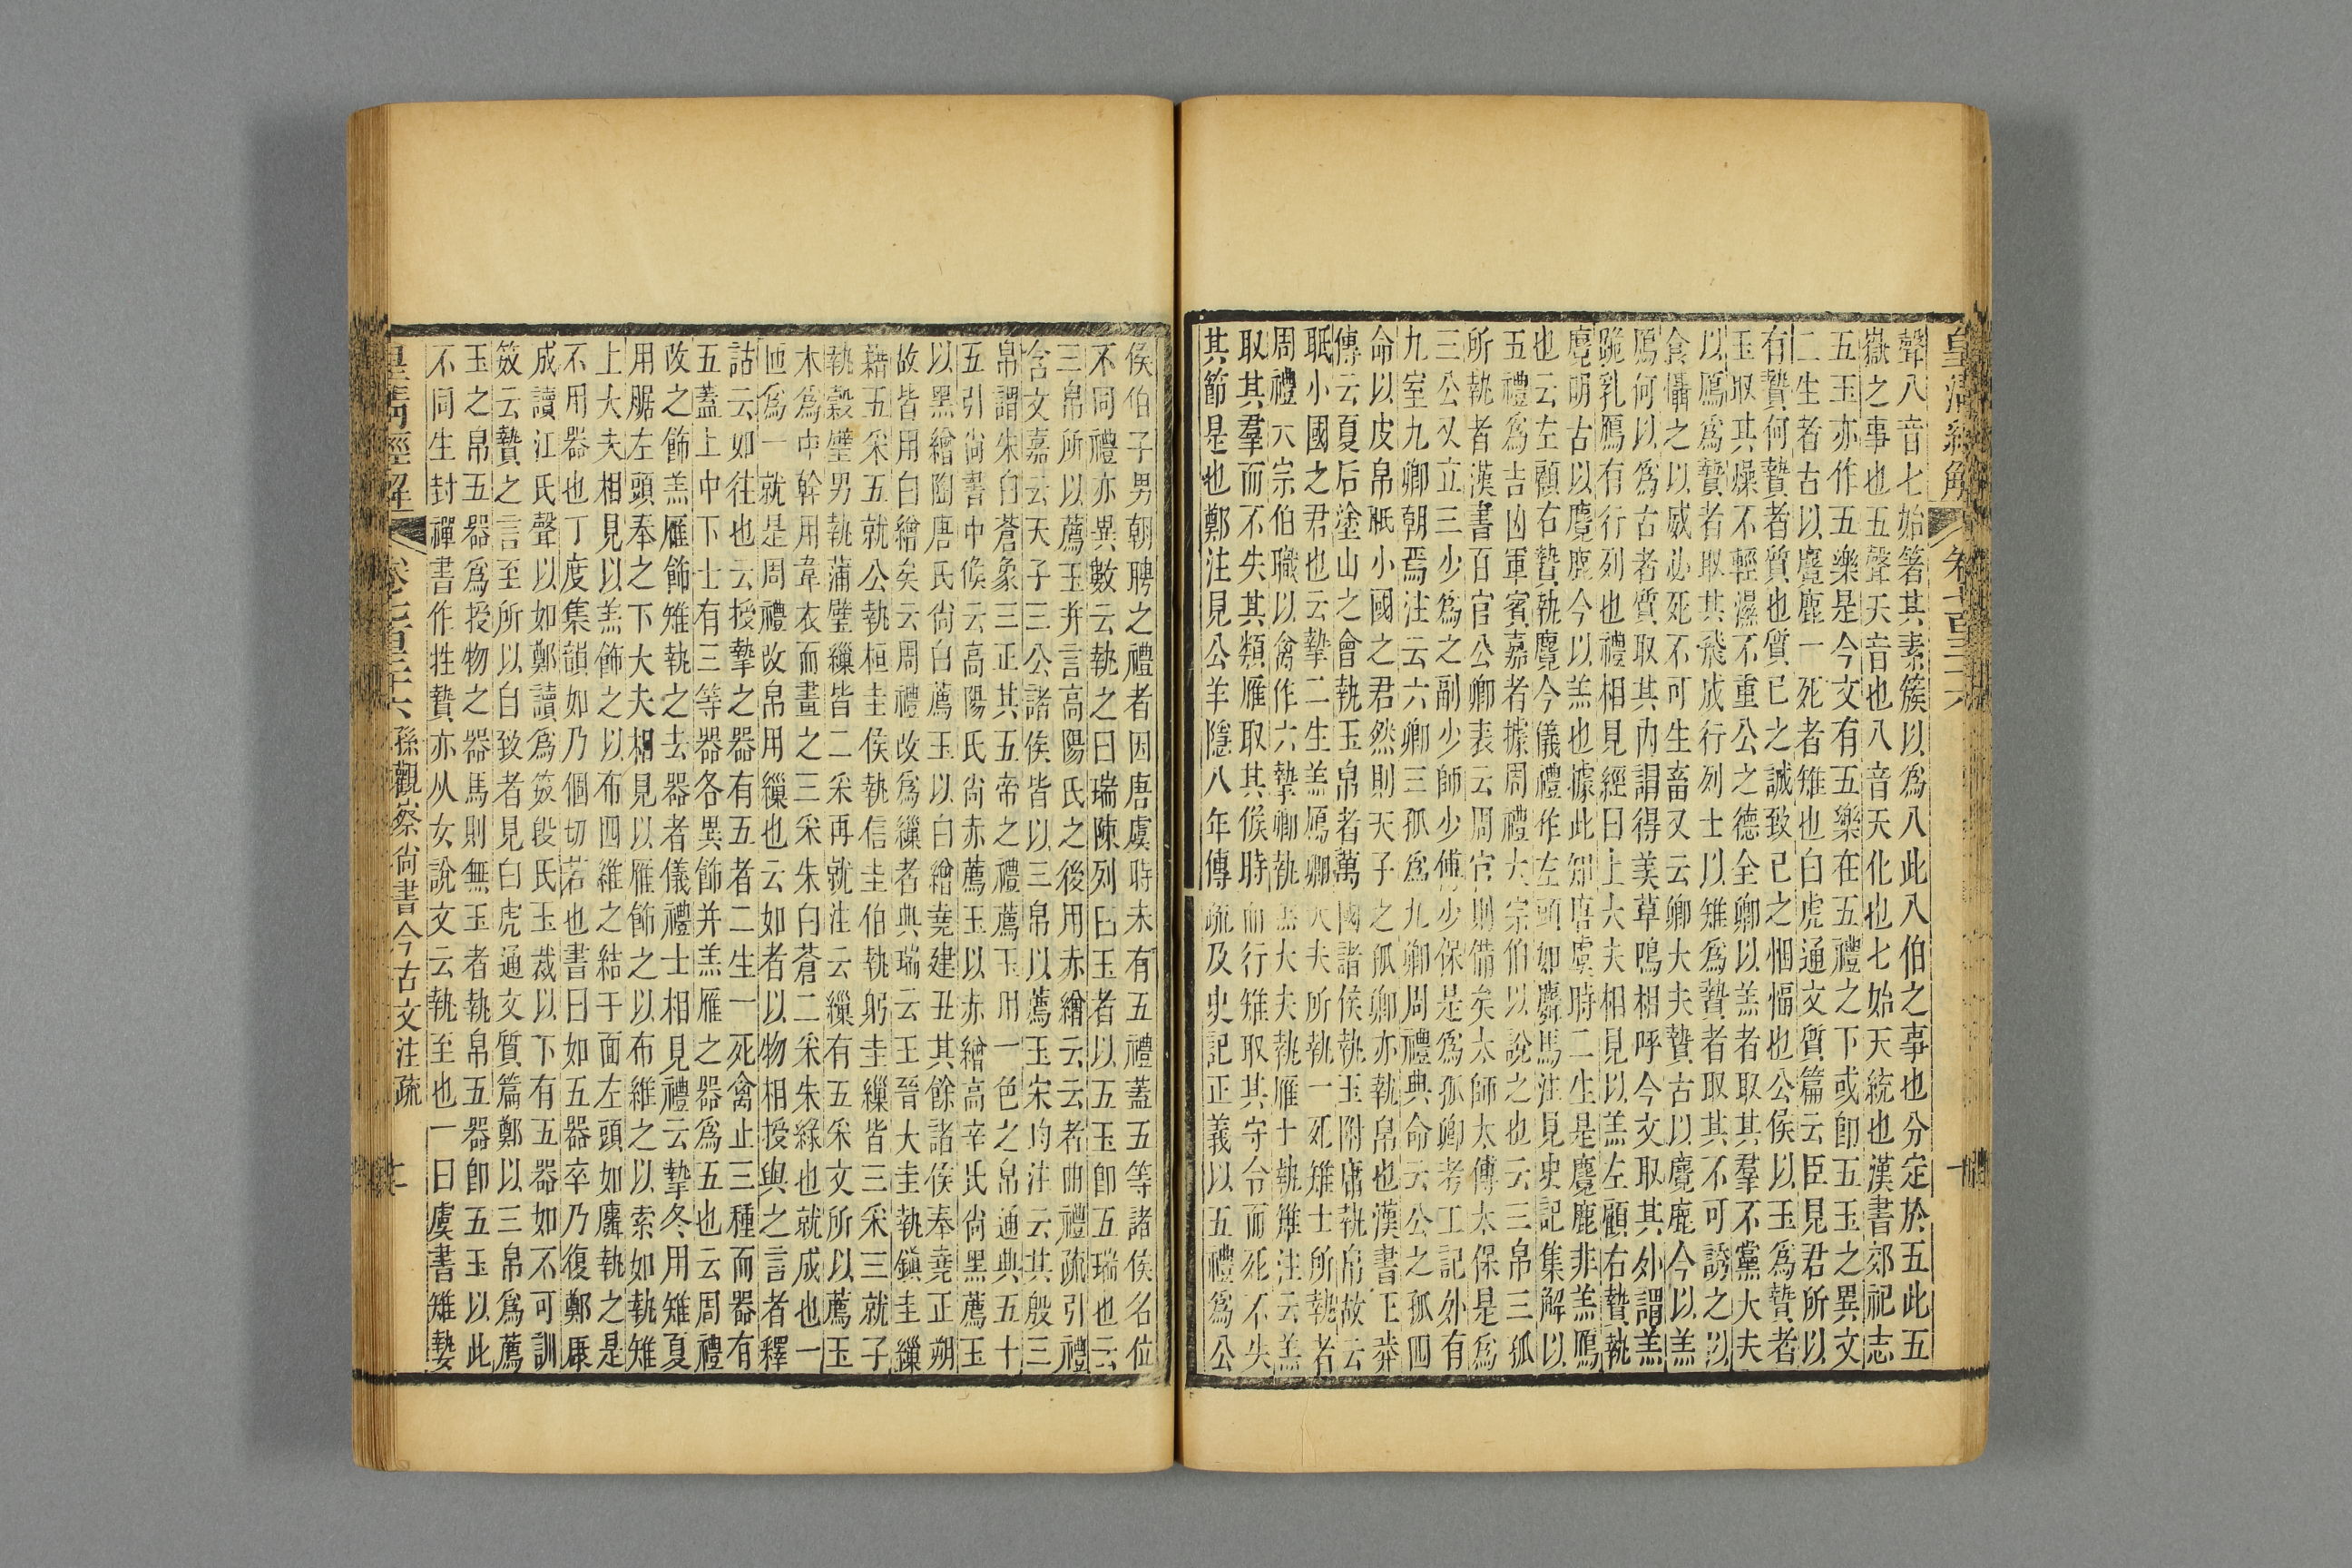 皇清經解 卷七百三十六 十
聲八音七始箸其素簇以爲八此八伯之事也分定於五此五
嶽之事也五聲天音也八音天化也七始天統也漢書郊祀志
五玉亦作五樂是今文有五樂在五禮之下或卽五玉之異文
二生者古以麑鹿一死者雉也白虎通文質篇云臣見君所以
有贄何贄者質也質己之誠致己之悃愊也公侯以玉爲贄者
玉取其燥不輕濕不重公之德全卿以羔者取其羣不黨大夫
以鴈爲贄者取其飛成行列士以雉爲贄者取其不可誘之以
食懾之以威必死不可生畜又云卿大夫贄古以麑鹿今以羔
鴈何以爲古者質取其內謂得美草鳴相呼今文取其外謂羔
跪乳鴈有行列也禮相見經曰上大夫相見以羔左顧右贄執
麑明古以麑鹿今以羔也據此知唐虞時二生是麑鹿非羔鴈
也云左顧右贄執麑今儀禮作左頭如麛馬注見史記集解以
五禮爲吉凶軍賓嘉者據周禮大宗伯以說之也云三帛三孤
所執者漢書百官公卿表云周官則備矣太師太傅太保是爲
三公又立三少爲之副少師少傅少保是爲孤卿考工記外有
九室九卿朝焉注云六卿三孤爲九卿周禮典命云公之孤四
命以皮帛眡小國之君然則天子之孤卿亦執帛也漢書王莽
傳云夏后塗山之會執玉帛者萬國諸侯執玉附庸執帛故云
眡小國之君也云摯二生羔鴈卿大夫所執一死雉士所執者
周禮大宗伯職以禽作六摯卿執羔大夫執雁士執雉注云羔
取其羣而不失其類雁取其候時而行雉取其守介而死不失
其節是也鄭注見公羊隱八年傳疏及史記正義以五禮爲公
侯伯子男朝聘之禮者因唐虞時未有五禮蓋五等諸侯名位
不同禮亦異數云執之曰瑞陳列曰玉者以五玉卽五瑞也云
三帛所以薦玉并言高陽氏之後用赤繒云云者曲禮疏引禮
含文嘉云天子三公諸侯皆以三帛以薦玉宋均注云其殷三
帛謂朱白蒼象三正其五帝之禮薦玉用一色之帛通典五十
五引尙書中候云高陽氏尙赤薦玉以赤繒高辛氏尙黑薦玉
以黑繒陶唐氏尙白薦玉以白繒堯建丑其餘諸侯奉堯正朔
故皆用白繒矣云周禮改爲繅者典瑞云王晉大圭執鎭圭繅
藉五采五就公執桓圭侯執信圭伯執躬圭繅皆三采三就子
執穀璧男執蒲璧繅皆二采再就注云繅有五采文所以薦玉
木爲中幹用韋衣而畫之三采朱白蒼二采朱綠也就成也一
帀爲一就是周禮改帛用繅也云如者以物相授與之言者釋
詁云如往也云授摯之器有五者二生一死禽止三種而器有
五蓋上中下士有三等器各異飾并羔雁之器爲五也云周禮
改之飾羔雁飾雉執之去器者儀禮士相見禮云摯冬用雉夏
用腒左頭奉之下大夫相見以雁飾之以布維之以索如執雉
上大夫相見以羔飾之以布四維之結于面左頭如麛執之是
不用器也丁度集韻如乃個切若也書曰如五器卒乃復鄭康
成讀江氏聲以如鄭讀爲笯段氏玉裁以下有五器如不可訓
笯云贄之言至所以自致者見白虎通文質篇鄭以三帛爲薦
玉之帛五器爲授物之器馬則無玉者執帛五器卽五玉以此
不同生封禪書作牲贄亦从女說文云執至也一曰虞書雉摯
皇清經解 卷七百三十六 孫觀察尙書今古文注疏 十一